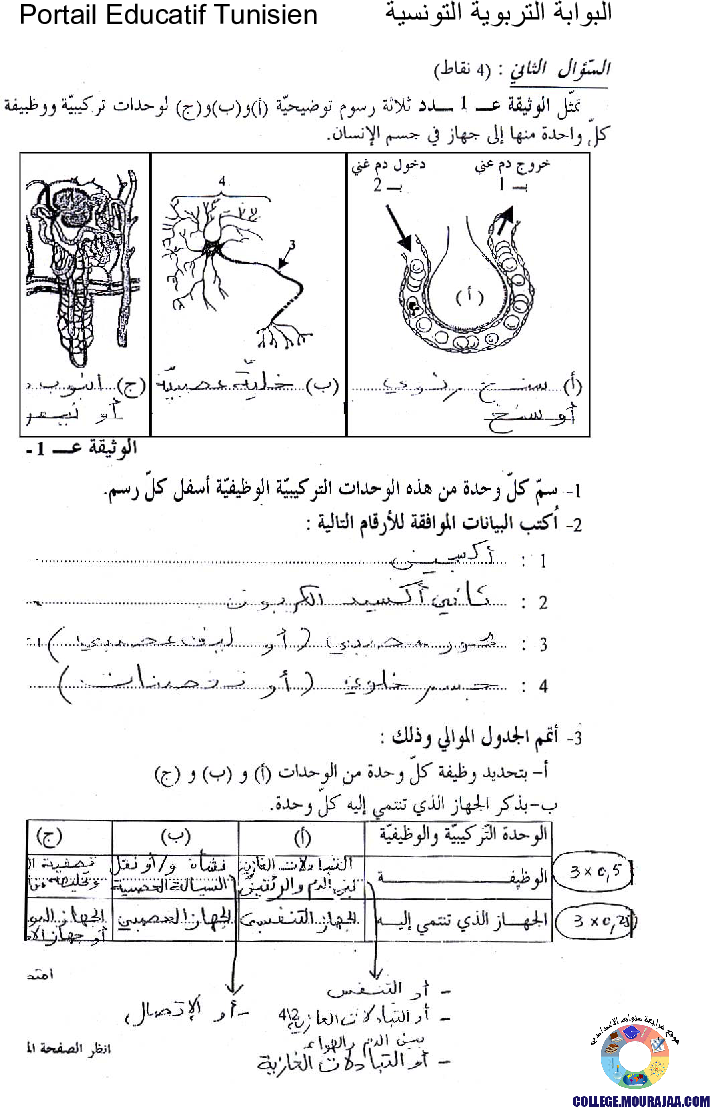 Portail Educatif Tunisien البوابة التربوية التونسية
السّؤال الثاني : (4 نقاط)
تمثّل الوثيقة عـــ 1 ــدد ثلاثة رسوم توضيحيّة (أ) و(ب) و(ج) لوحدات تركيبيّة ووظيفة
كلّ واحدة منها إلى جهاز في جسم الإنسان.
خروج دم غني بـ 1
دخول دم غني بـ 2
4
3
(أ)
(أ) سنخ رئوي
أو سنخ
(ب) خليّة عصبيّة
(ج) أنبوب
أو
الوثيقة عـــ 1 -
1- سمّ كلّ وحدة من هذه الوحدات التركيبيّة الوظيفيّة أسفل كلّ رسم.
2- أكتب البيانات الموافقة للأرقام التالية :
1 : أكسجين
2 : ثاني أكسيد الكربون
3 : محور عصبي (أو ليف عصبي)
4 : جسم خلوي (أو تفرعات)
3- أتمم الجدول الموالي وذلك :
أ- بتحديد وظيفة كلّ وحدة من الوحدات (أ) و (ب) و (ج)
ب- بذكر الجهاز الذي تنتمي إليه كلّ وحدة.
الوحدة التّركيبيّة والوظيفيّة (أ) (ب) (ج)
3 × 0,5
الوظيفـــة التبادلات الغازية نشأة و/أو نقل تصفية
بين الدم والرئتين السيالة العصبية
3 × 0,25
الجهـاز الذي تنتمي إليـه الجهاز التنفسي الجهاز العصبي الجهاز
أو جهاز
- أو التنفس
- أو التبادلات الغازية
بين الدم والهواء
- أو التبادلات الغازية
- أو الإتصال
انظر الصفحة
COLLEGE.MOURAJAA.COM